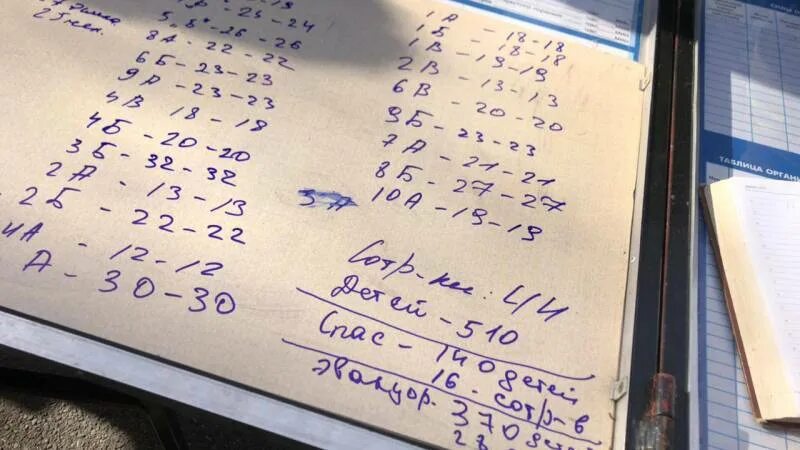 25 чел.
23-24
5 - 26-26
8А - 22-22
6Б - 23-23
9А - 23-23
4В 18-18
4Б - 20-20
3Б - 32-32
2А - 13-13
2Б - 22-22
12-12
А - 30-30
1А - 18-18
1Б - 18-18
1В - 19-19
2В - 13-13
6В - 20-20
9Б - 23-23
7А - 21-21
8Б - 27-27
10А - 19-19
Детей - 510
Спас - 140 детей
16 - сотр-в
Эвакуир. 370 дет
ТАБЛИЦА ОРГАНИ